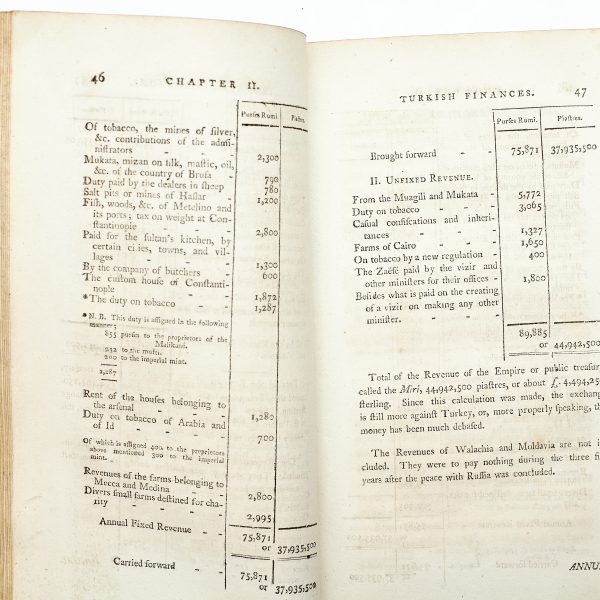 46 CHAPTER II.
Purses Rumi. Piastres.
Of tobacco, the mines of silver,
&c. contributions of the admi-
nistrators - - 2,300
Mukata, mizan on silk, mastic, oil,
&c. of the country of Brusa - 790
Duty paid by the dealers in sheep 780
Salt pits or mines of Hassar - 1,200
Fish, woods, &c. of Metelino and
its ports; tax on weight at Con-
stantinople - - 2,800
Paid for the sultan's kitchen, by
certain cities, towns, and vil-
lages - - - 1,300
By the company of butchers - 600
The custom house of Constanti-
nople - - - 1,872
*The duty on tobacco - - 1,287
* N. B. This duty is assigned in the following
manner;
855 purses to the proprietors of the
Malikané.
232 to the mufti.
200 to the imperial mint.
1,287
Rent of the houses belonging to
the arsenal - - - 1,280
Duty on tobacco of Arabia and
of Id - - - - 700
Of which is assigned 400 to the proprietors
above mentioned 300 to the imperial
mint.
Revenues of the farms belonging to
Mecca and Medina - - 2,800
Divers small farms destined for cha-
rity - - - - 2,995
Annual Fixed Revenue - - 75,871
or 37,935,500
Carried forward - - 75,871
or 37,935,500
TURKISH FINANCES. 47
Purses Rumi. Piastres.
Brought forward - - 75,871 37,935,500
II. UNFIXED REVENUE.
From the Muagili and Mukata - 5,772
Duty on tobacco - - - 3,065
Casual confiscations and inheri-
tances - - - 1,327
Farms of Cairo - - - 1,650
On tobacco by a new regulation - 400
The Zaëfé paid by the vizir and
other ministers for their offices - 1,800
Besides what is paid on the creating
of a vizir on making any other
minister. - - -
89,885
or 44,942,500
Total of the Revenue of the Empire or public treasury
called the Miri, 44,942,500 piastres, or about £. 4,494,25
sterling. Since this calculation was made, the exchang
is still more against Turkey, or, more properly speaking, th
money has been much debased.
The Revenues of Walachia and Moldavia are not i
cluded. They were to pay nothing during the three fi
years after the peace with Russia was concluded.
ANNU